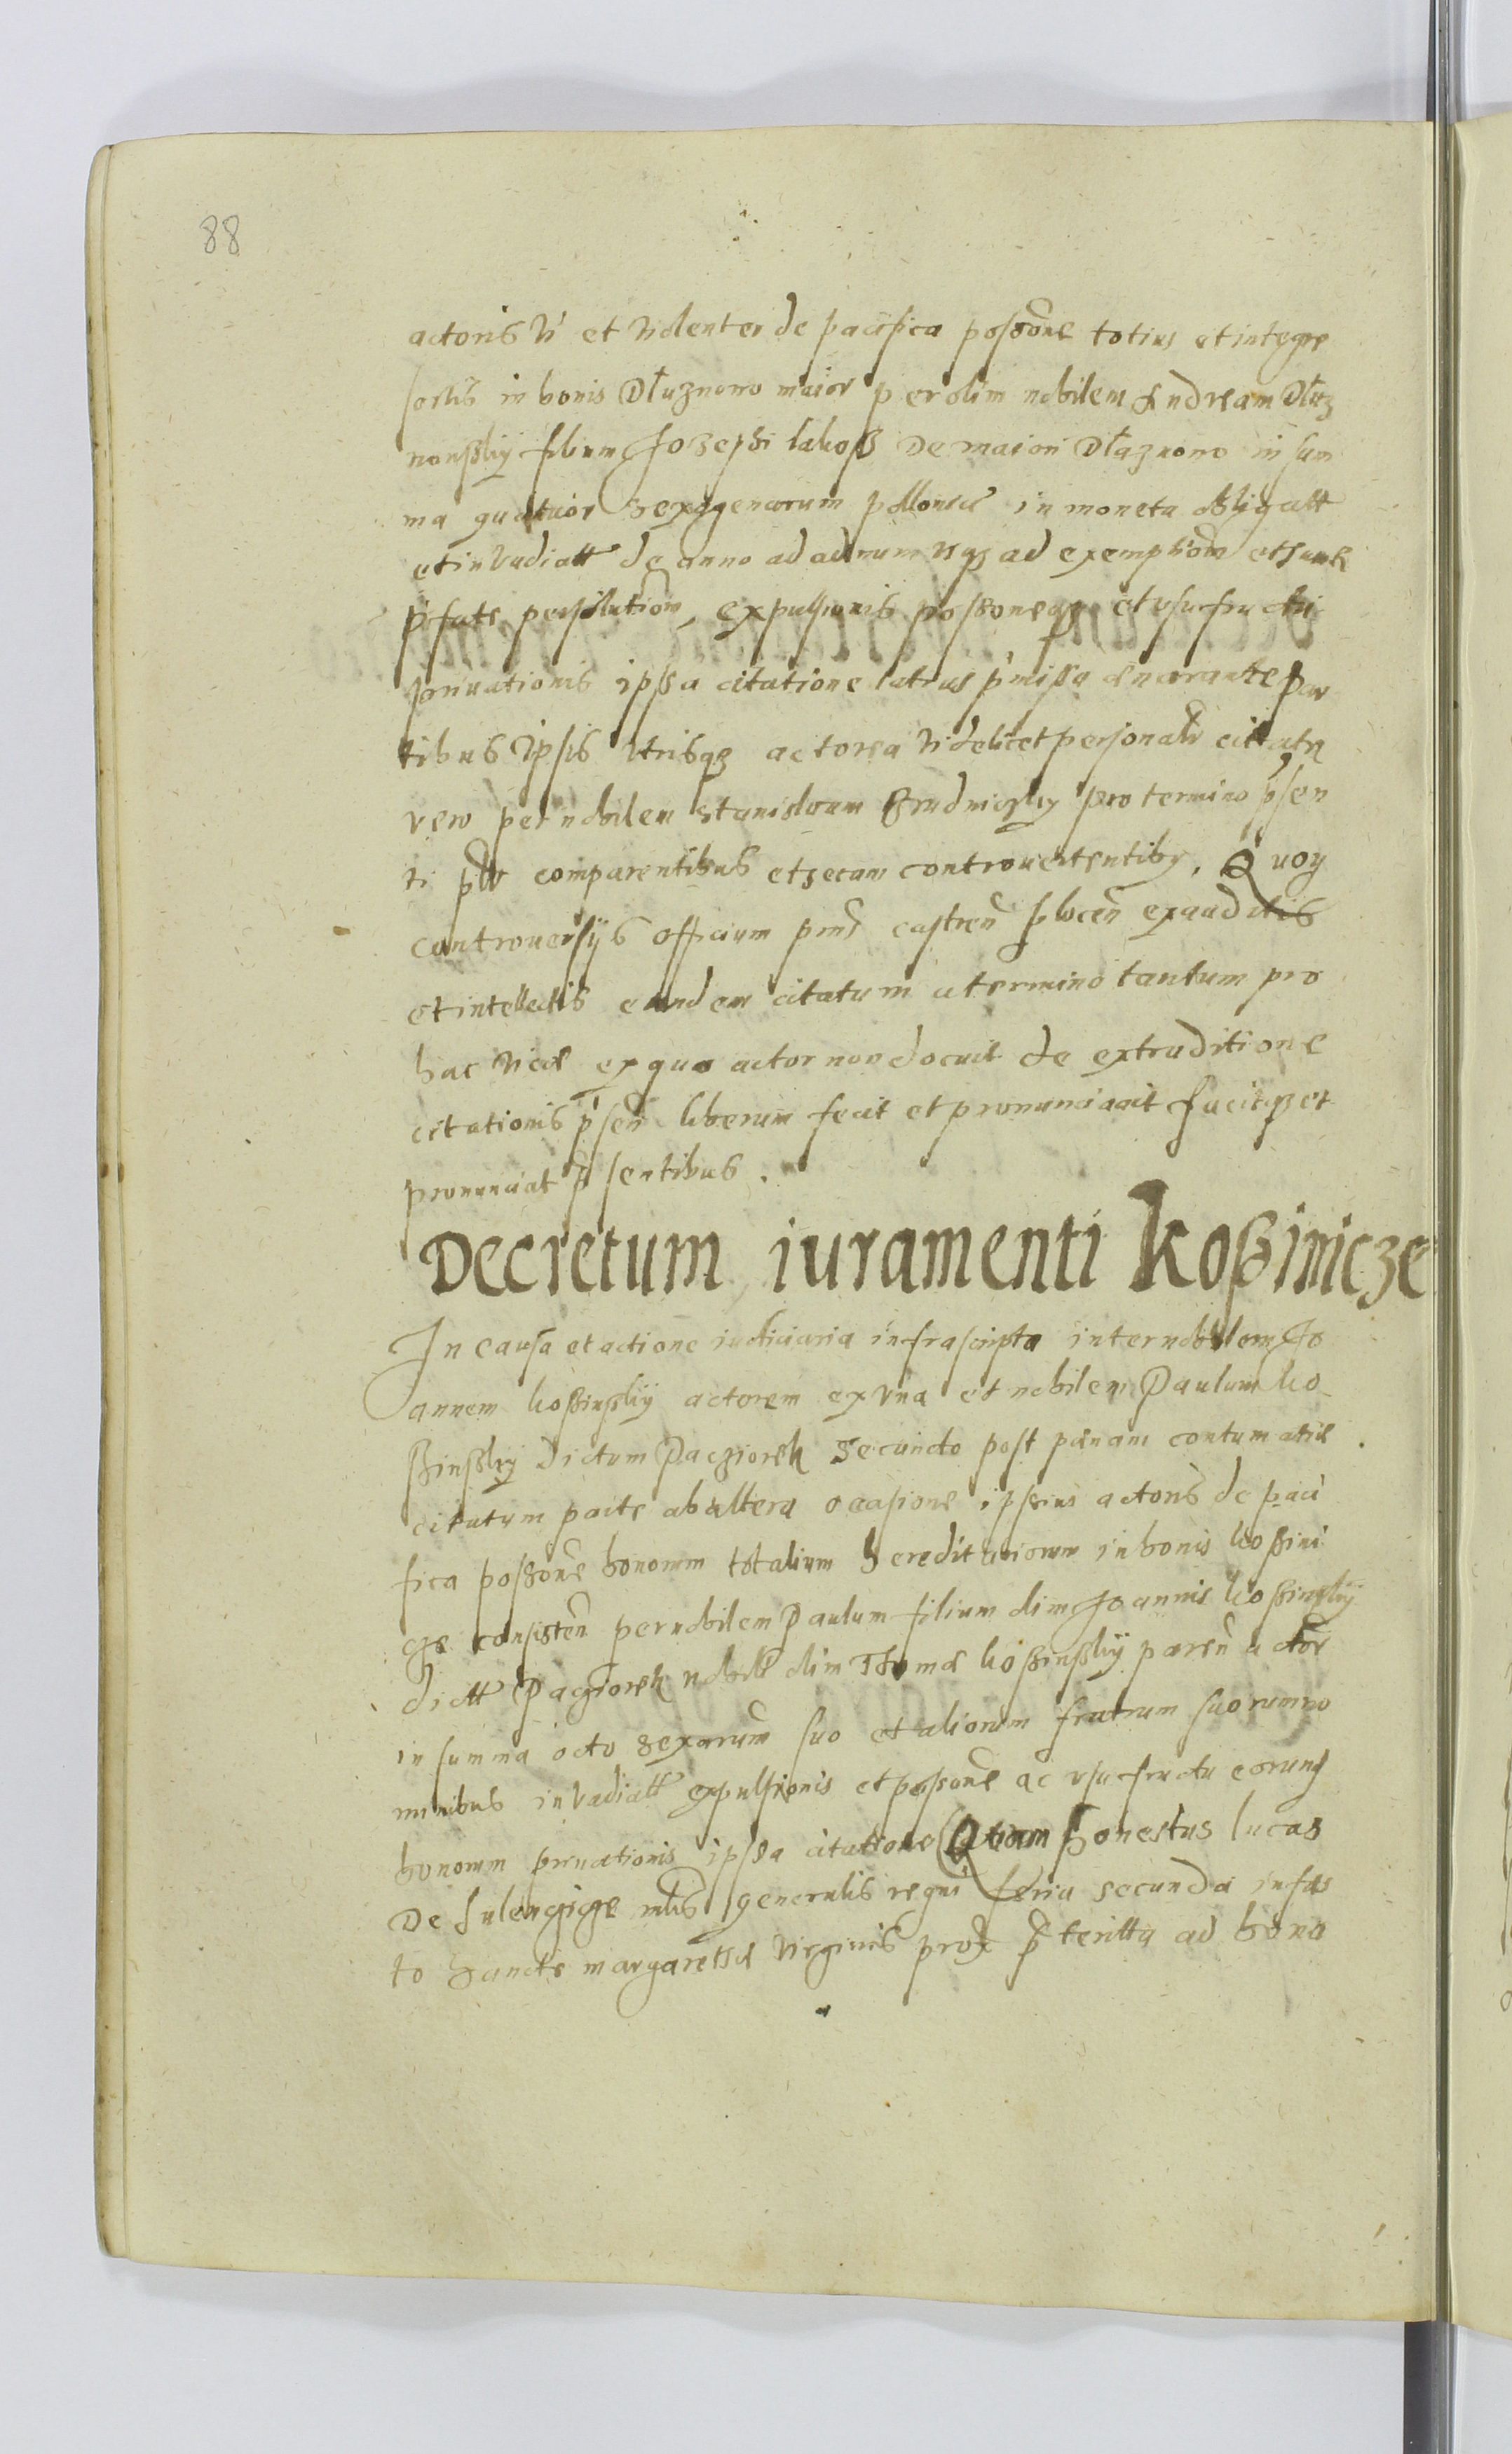 88
actoris vi et violenter de pacifica possone totius et integre
sortis in bonis Dłuznono maior per olim nobilem Andream Dłuz
nonsskij filium Jozephi lakoss de maiori Dłuznono in sum
ma quatuor sexagenarum pollonice in moneta obligatt
et invadiatt de anno ad adnum usq ad exemptiom et summe
pfate persolutiom, expulsionis possoneqz et usufructu
privationis ipssa citatione latius pmissa denarante par
tibus ipsis utrisqz actorea videlicet personalr citata
vero per nobilem Stanislaum Grudniczky pro termino psen
ti comparentibus et secum controvertentiby, Quoy
controversijs officium pns castren plocen exauditis
et intellectis eundem citatum a termino tantum pro
hac vice ex quo actor non docuit de extraditione
citationis psen liberum fecit et pronunciavit facitqz et
pronunciat psentibus.
Decretum iuramenti Kossinicze
In causa et actione iudiciaria infrascripta inter nobilem Jo
annem kossinsskij actorem ex una et nobilem Paulum ko
ssinsskij dictum Pacziorek secundo post pænam contumatiæ
citatum parte ab altera ocasione ipsius actoris de paci
fica possone bonorum totalium hereditariorum in bonis kossini
cze consisten per nobilem Paulum filium olim Joannis kossinskij
dictt Pacziorek nobili olim Thomæ kossinsskij paren actor
in summa octo sexarum suo et aliorum fratrum suorum no
minibus invadiatt expulsionis et possone ac usufructu eorund
bonorum privationis ipssa citatione Quam honestus Lucas
de Sulencice mlis generalis regni feria secunda in fes
to Sancte margarethæ virginis prox pteritta ad bona